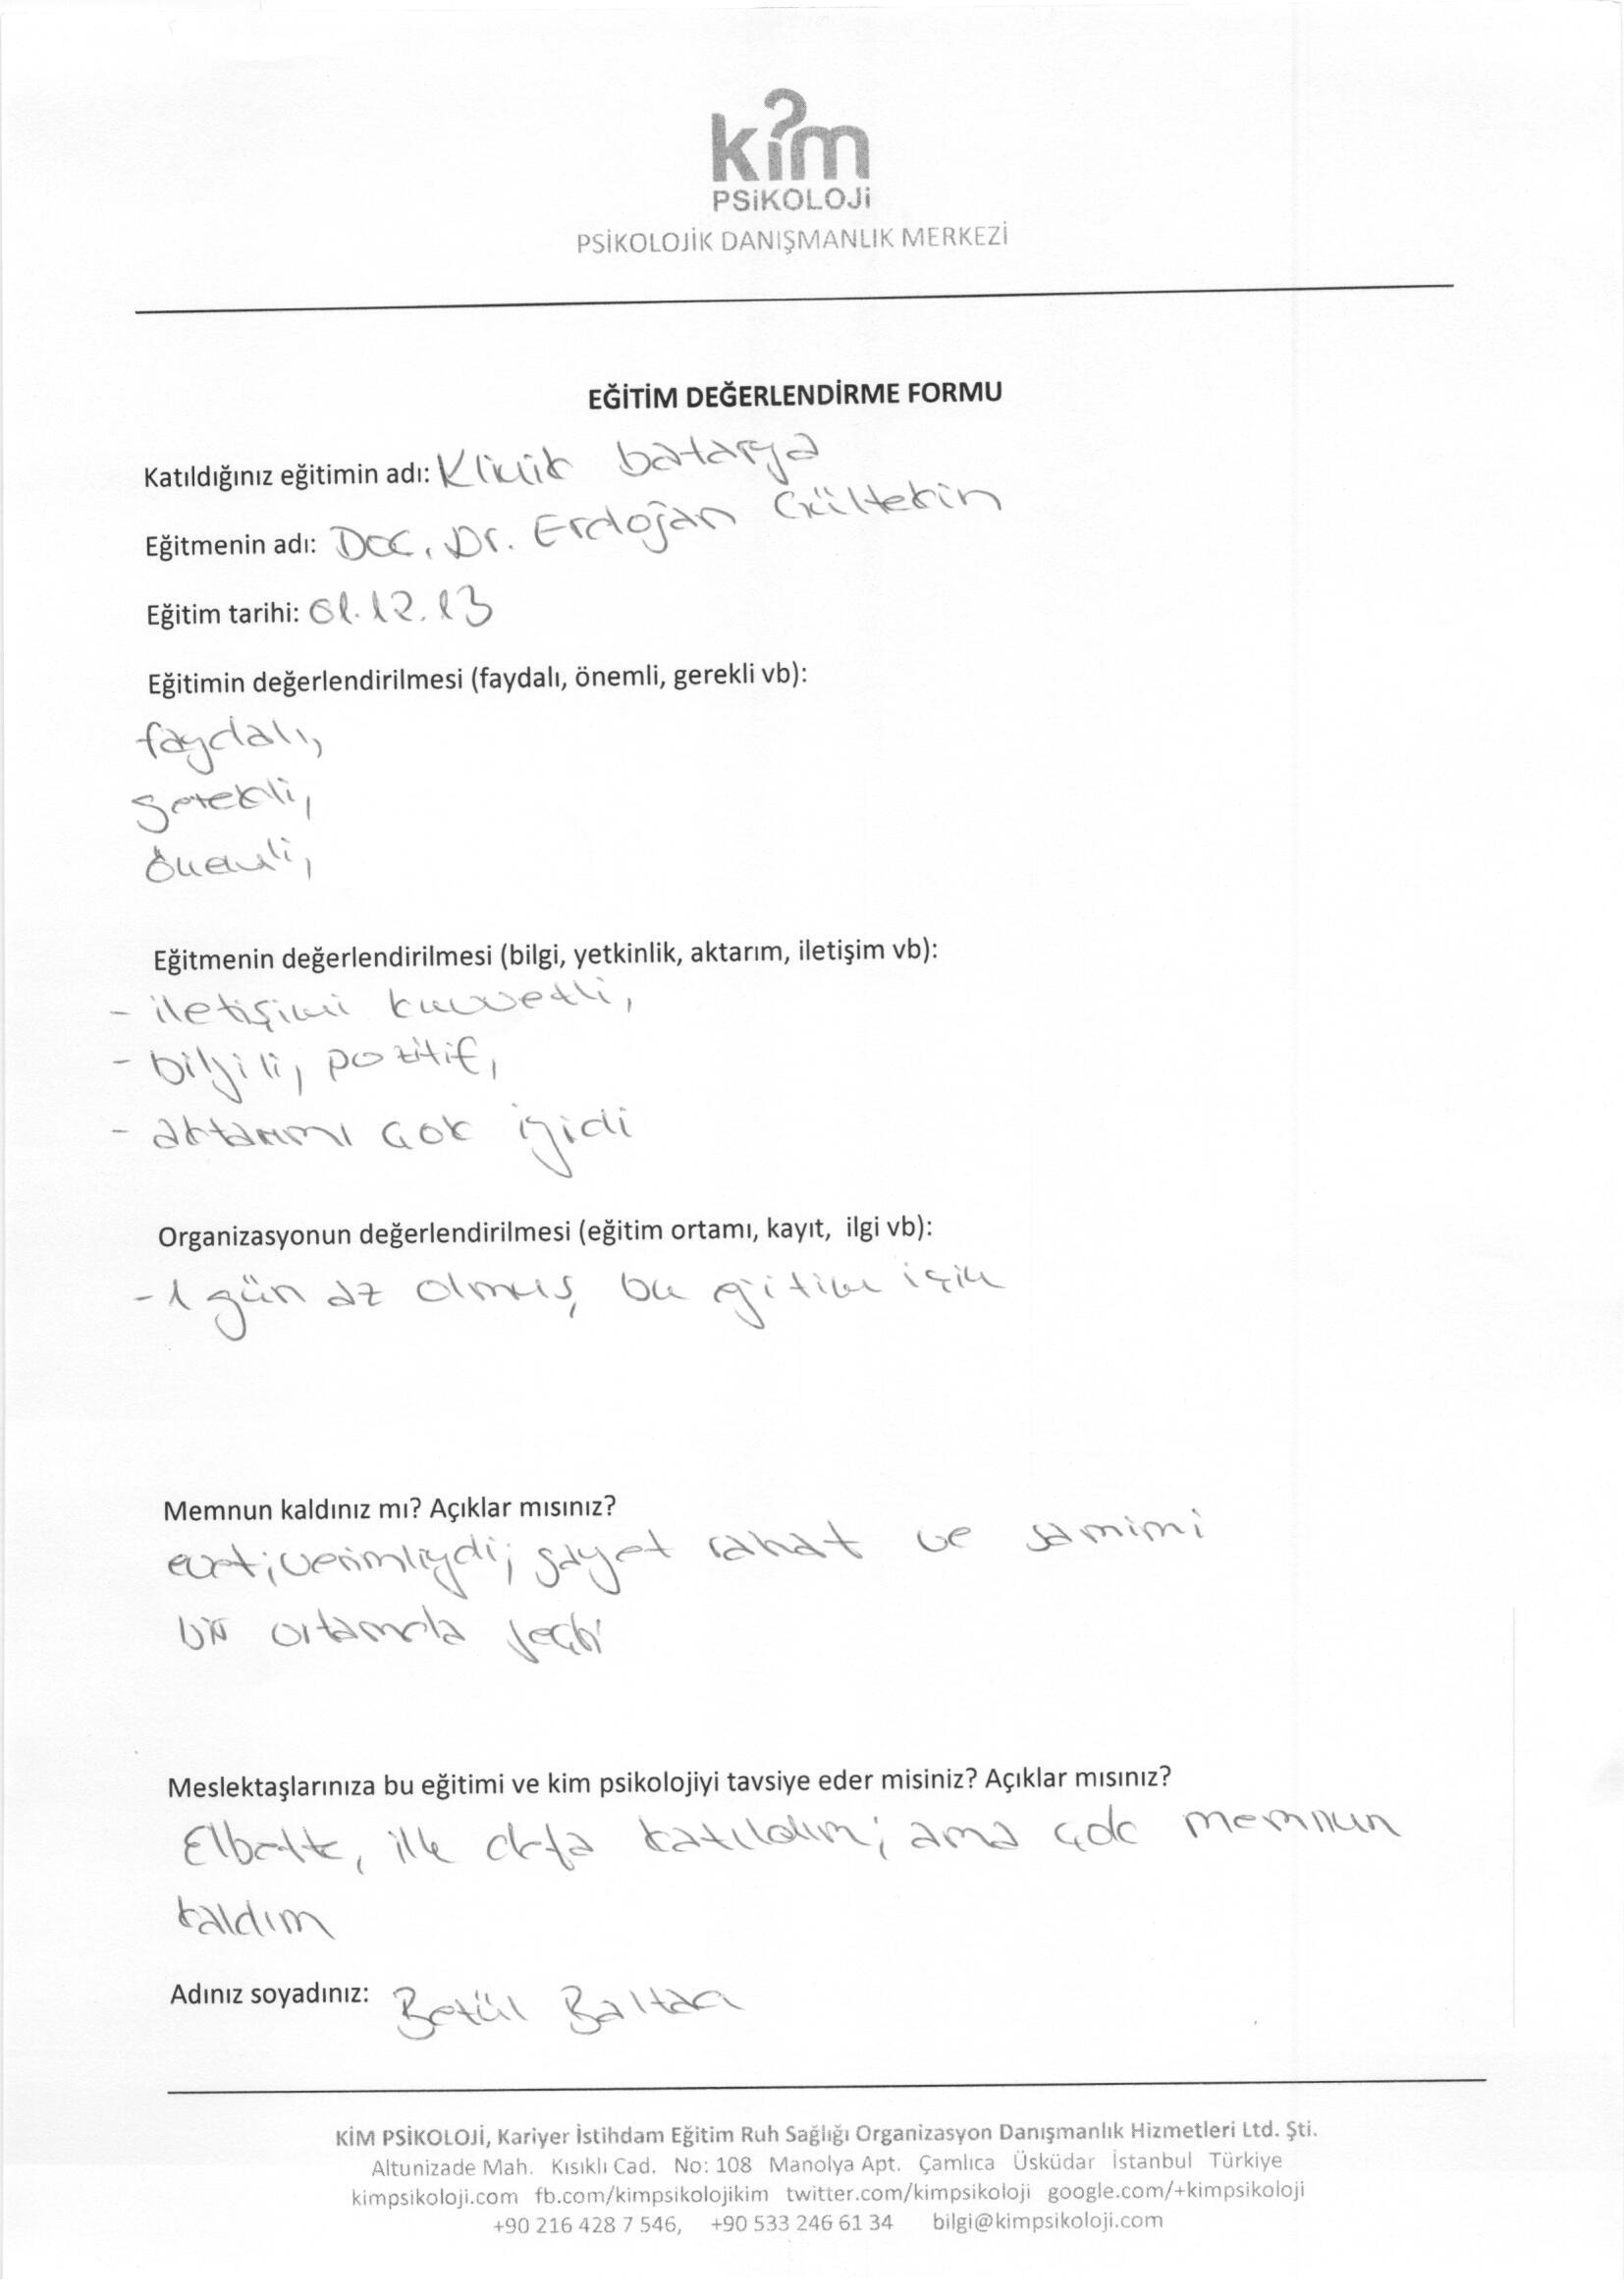 kim
PSİKOLOJİ
PSİKOLOJİK DANIŞMANLIK MERKEZİ
EĞİTİM DEĞERLENDİRME FORMU
Katıldığınız eğitimin adı: Klinik batarya
Eğitmenin adı: Doç. Dr. Erdoğan Gültekin
Eğitim tarihi: 01.12.13
Eğitimin değerlendirilmesi (faydalı, önemli, gerekli vb):
faydalı,
gerekli,
önemli,
Eğitmenin değerlendirilmesi (bilgi, yetkinlik, aktarım, iletişim vb):
- iletişimi kuvvetli,
- bilgili, pozitif,
- aktarımı çok iyidi
Organizasyonun değerlendirilmesi (eğitim ortamı, kayıt, ilgi vb):
- 1 gün az olmuş, bu eğitim için
Memnun kaldınız mı? Açıklar mısınız?
evet; verimliydi; gayet rahat ve samimi
bir ortamda geçti
Meslektaşlarınıza bu eğitimi ve kim psikolojiyi tavsiye eder misiniz? Açıklar mısınız?
Elbette, ilk defa katıldım; ama çok memnun
kaldım
Adınız soyadınız: Betül Baltacı
KİM PSİKOLOJİ, Kariyer İstihdam Eğitim Ruh Sağlığı Organizasyon Danışmanlık Hizmetleri Ltd. Şti.
Altunizade Mah. Kısıklı Cad. No: 108 Manolya Apt. Çamlıca Üsküdar İstanbul Türkiye
kimpsikoloji.com fb.com/kimpsikolojikim twitter.com/kimpsikoloji google.com/+kimpsikoloji
+90 216 428 7 546, +90 533 246 61 34 bilgi@kimpsikoloji.com